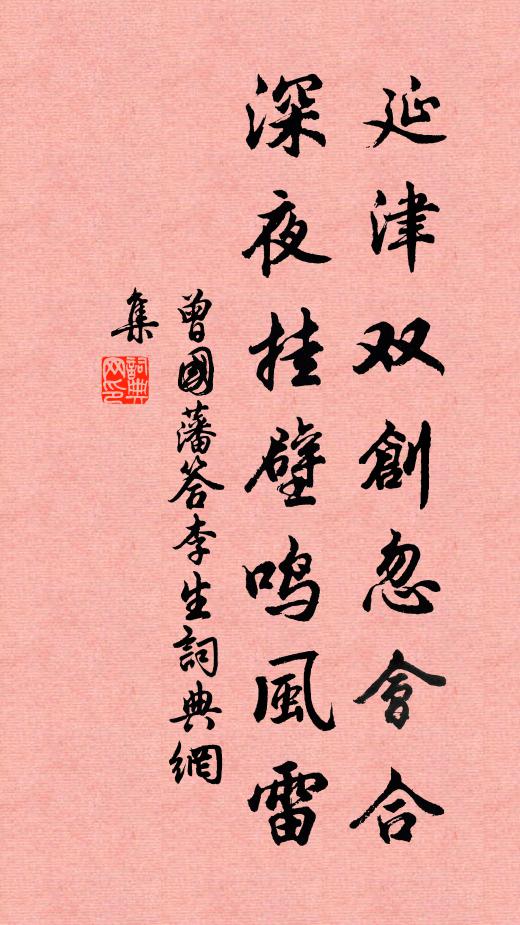 延津双創忽會合
深夜挂壁鸣風雷
曾國藩答李生詞典網
集
詞典网印